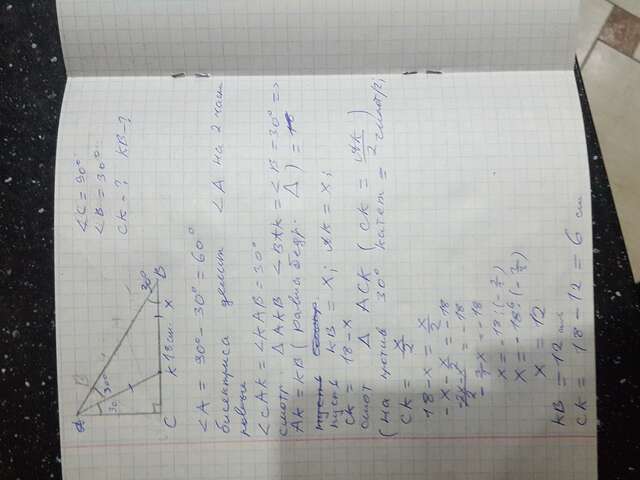 ∠C = 90°
∠B = 30°
CK = ? KB - ?
A
30
30°
30°
B
C K 18 см X
∠A = 90° - 30° = 60°
биссектриса делит ∠A на 2 части
равный
∠CAK = ∠KAB = 30°
смотр △AKB ∠BAK = ∠B = 30° =>
AK = KB (равна бедр. △) =
пусть KB = x; AK = x;
CK = 18 - x
смот △ ACK (CK = AK/2)
(на против 30° катет = 1/2 гипот);
CK = x/2
18 - x = x/2
-x - x/2 = -18
-2x-x/2 = -18
-3/2 x = -18
x = -18 : (-3/2)
x = -18 · (-2/3)
x = 12
KB = 12 см
CK = 18 - 12 = 6 см